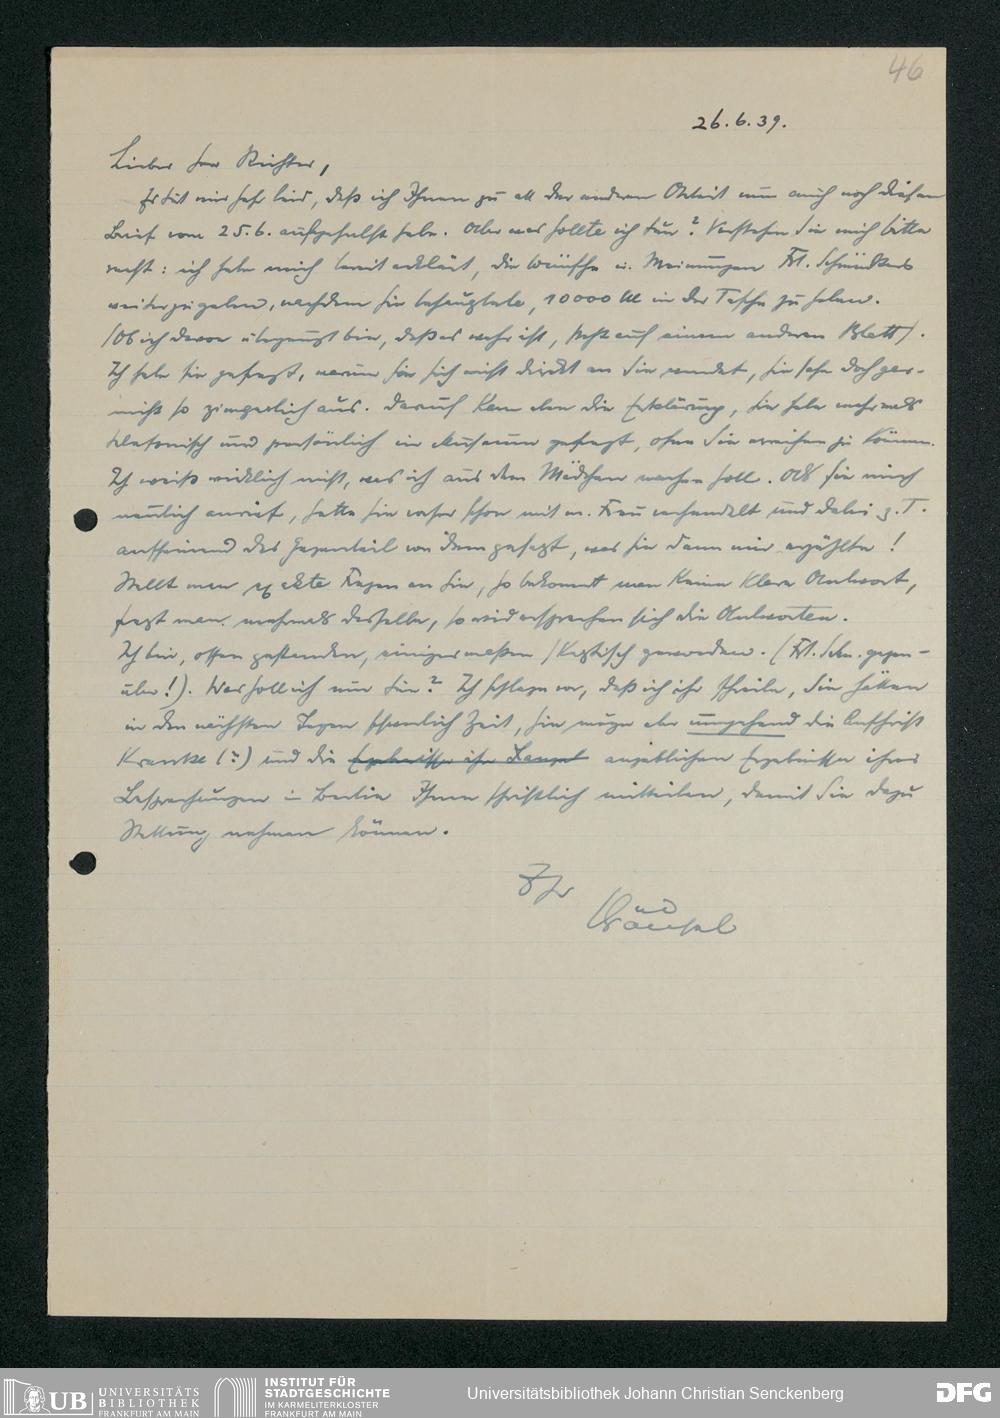 46
26.6.39.
Lieber Herr Richter,
Es tut mir sehr leid, daß ich Ihnen zu all der anderen Arbeit nun auch noch diesen
Brief vom 25.6. aufgehalst habe. Aber was sollte ich tun? Verstehen Sie mich bitte
recht: ich habe mich bereit erklärt, die Wünsche u. Meinungen Frl. Schmidts
weiterzugeben, nachdem sie behauptete, 10000 M in der Tasche zu haben.
(Ob ich davon überzeugt bin, daß es wahr ist, steht auf einem anderen Blatt).
Ich habe sie gefragt, warum sie sich nicht direkt an Sie wendet, sie sehe doch gar-
nicht so zimperlich aus. Darauf kam dann die Erklärung, sie habe mehrmals
telefonisch und persönlich im Museum gefragt, ohne Sie erreichen zu können.
Ich weiß wirklich nicht, was ich aus dem Mädchen machen soll. Als sie mich
neulich anrief, hatte sie vorher schon mit m. Frau verhandelt und dabei z.T.
anscheinend das Gegenteil von dem gesagt, was sie dann mir erzählte!
Stellt man exakte Fragen an sie, so bekommt man keine klare Antwort,
fragt man mehrmals dasselbe, so widersprechen sich die Antworten.
Ich bin, offen gestanden, einigermaßen skeptisch geworden. (Frl. Schm. gegen-
über!). Was soll ich nun tun? Ich schlage vor, daß ich ihr schreibe, Sie hätten
in den nächsten Tagen schwerlich Zeit, sie möge aber umgehend die Anschrift
(?) und die Ergebnisse ihr angeblichen Ergebnisse ihrer
Besprechungen in Berlin Ihnen schriftlich mitteilen, damit Sie dazu
Stellung nehmen können.
Ihr
Kräusel
UB UNIVERSITÄTS
BIBLIOTHEK
FRANKFURT AM MAIN
INSTITUT FÜR
STADTGESCHICHTE
IM KARMELITERKLOSTER
FRANKFURT AM MAIN
Universitätsbibliothek Johann Christian Senckenberg
DFG